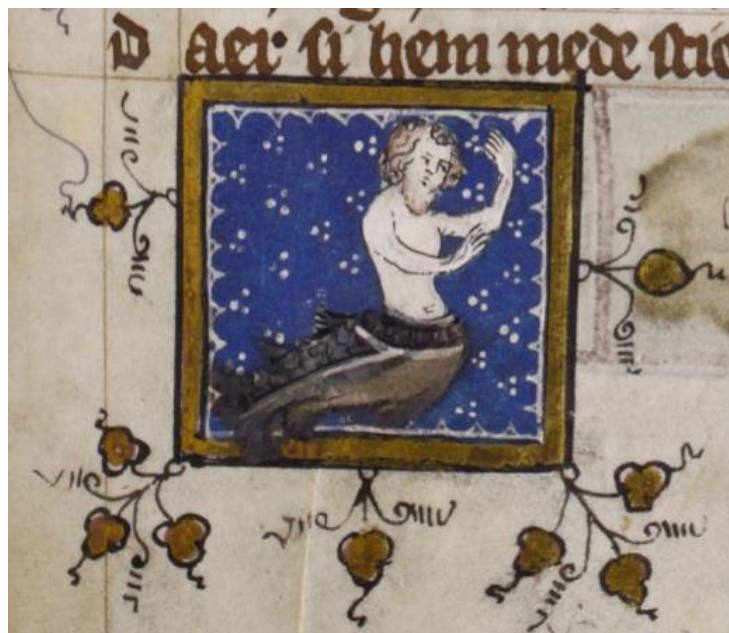 D aer si hem mede stie